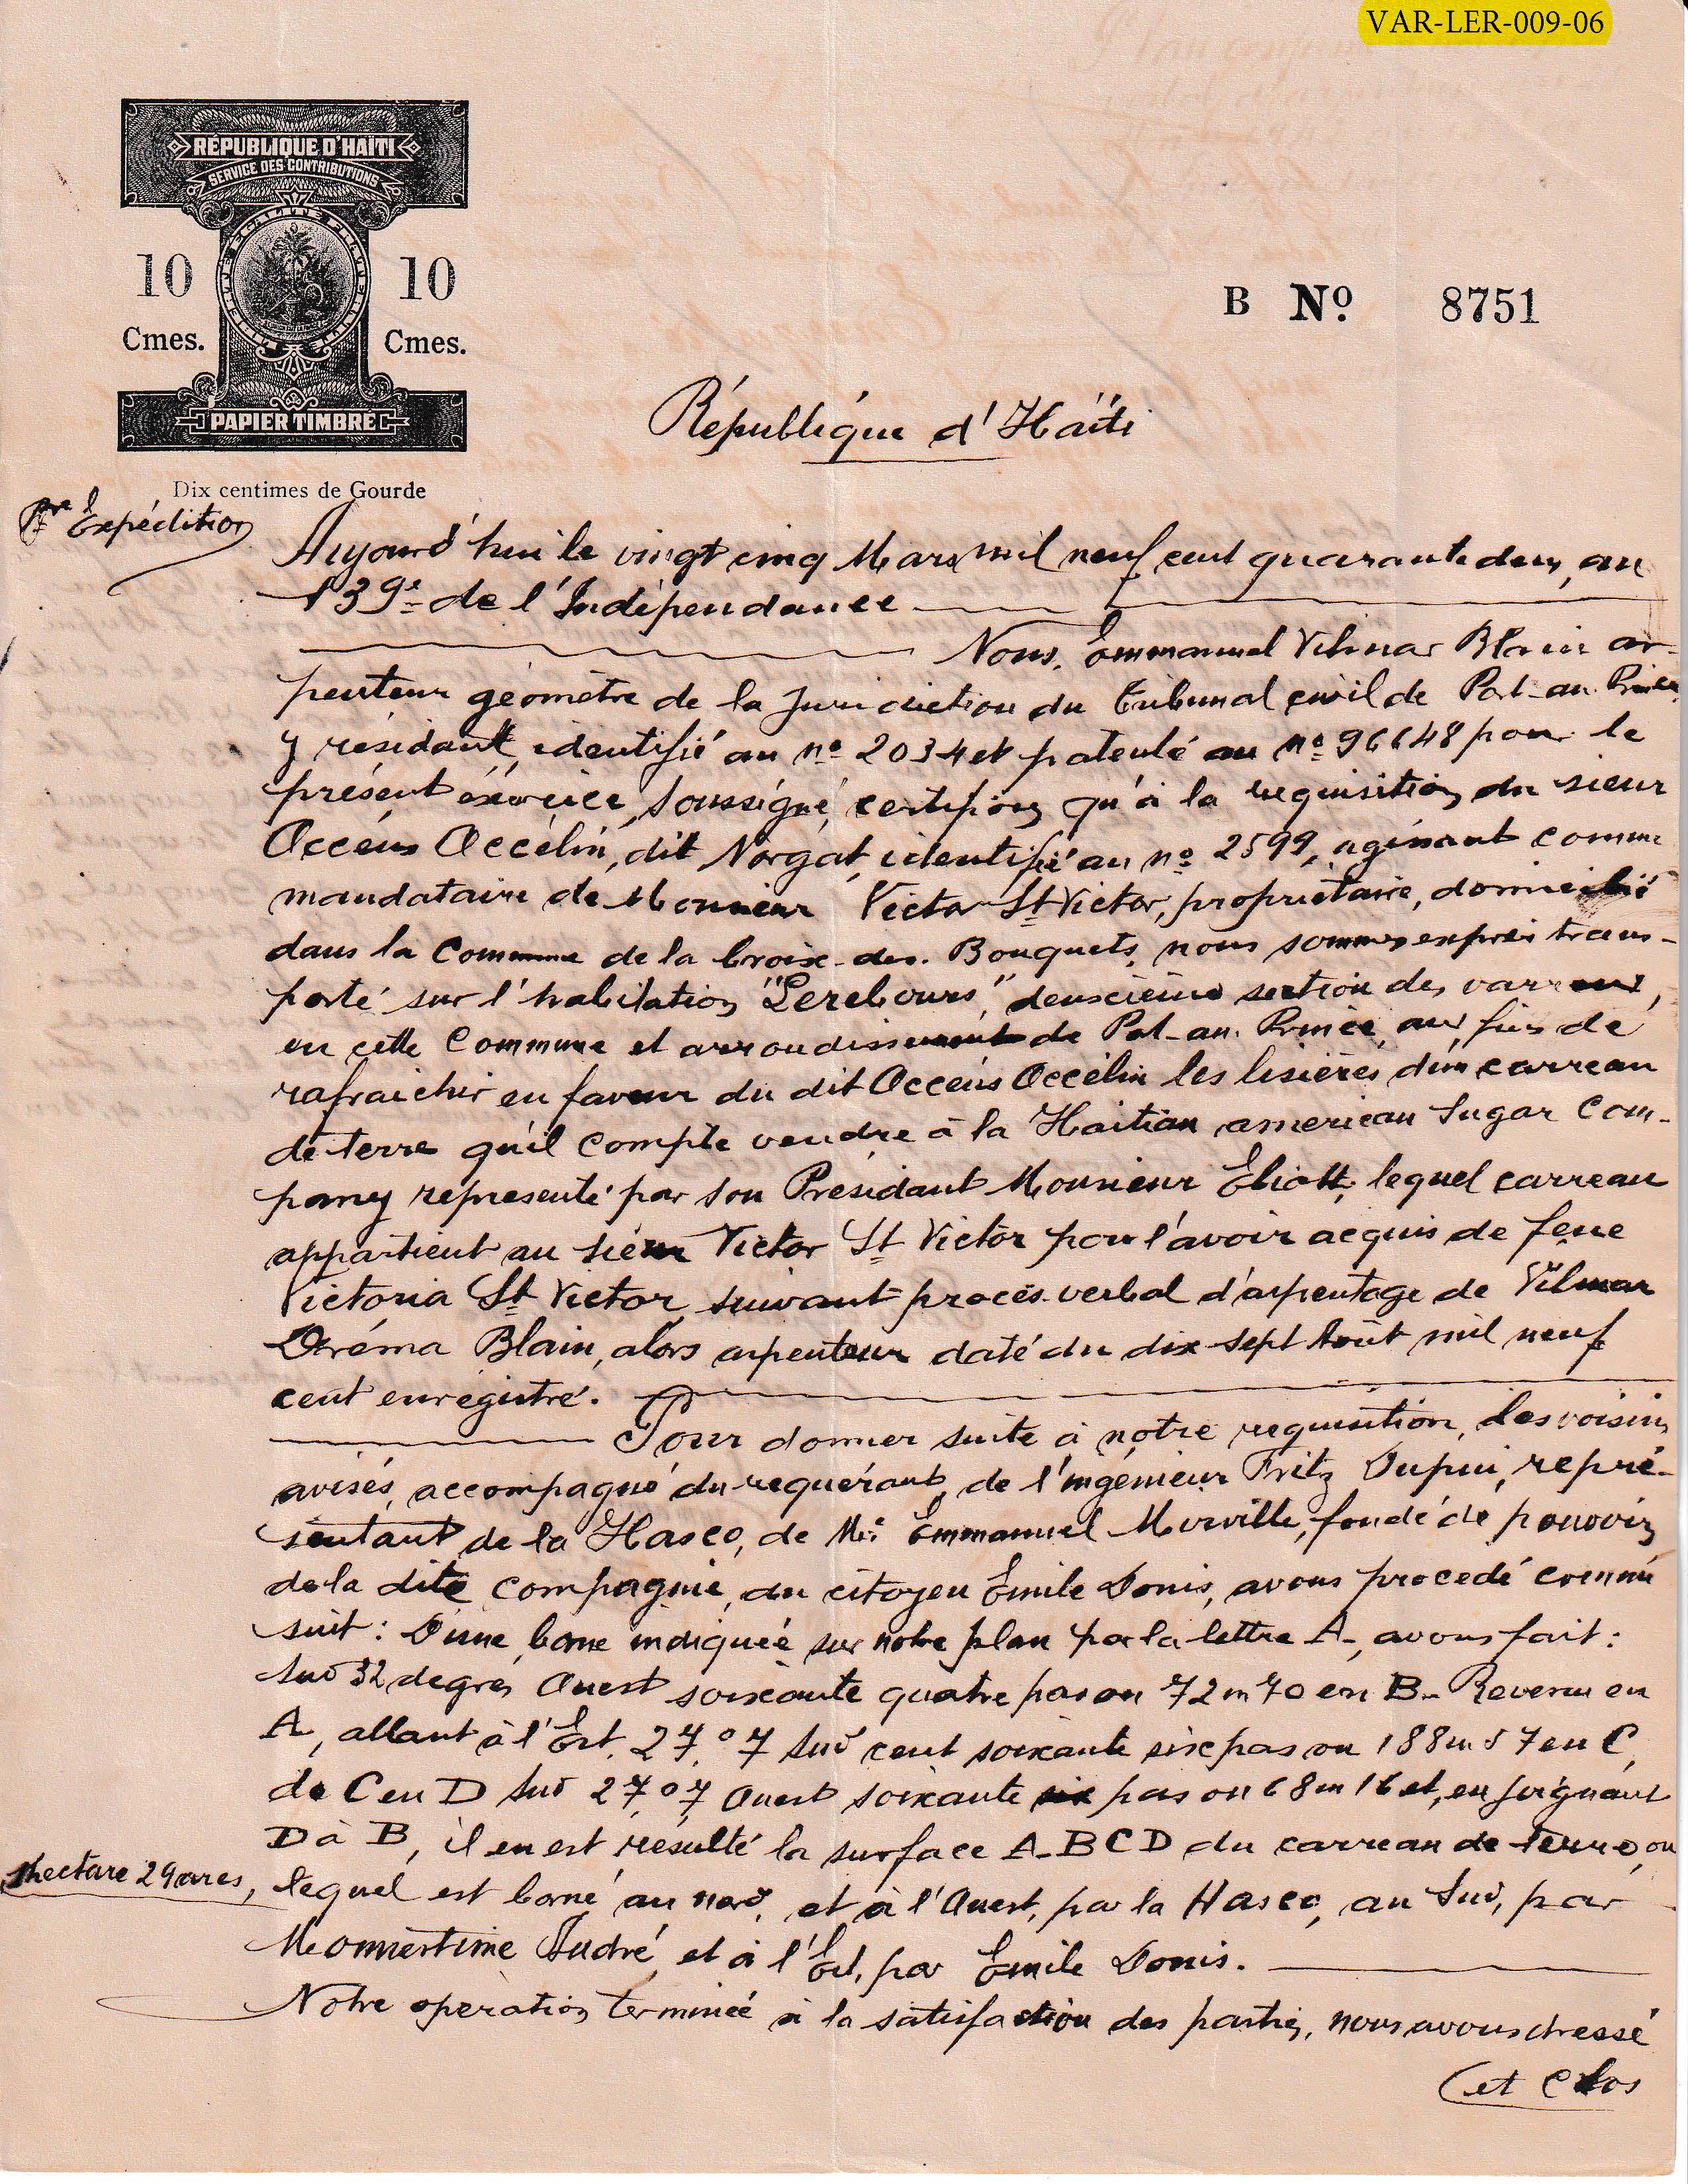 VAR-LER-009-06
RÉPUBLIQUE D'HAÏTI
SERVICE DES CONTRIBUTIONS
LIBERTÉ ÉGALITÉ FRATERNITÉ
10 10
Cmes. Cmes.
PAPIER TIMBRÉ
Dix centimes de Gourde
B No. 8751
République d'Haïti
1re Expédition
Aujourd'hui le vingt cinq Mars mil neuf cent quarante deux, an
139e de l'Indépendance
Nous, Emmanuel Vilmar Blain ar-
penteur géomètre de la Juridiction du Tribunal civil de Port-au-Prince
y résidant, identifié au no 2034 et patenté au no 96648 pour le
présent éxercice, soussigné, certifions qu'à la requisition du sieur
Occéus Occélin, dit Norgat, identifié au no 2599, agissant comme
mandataire de Monsieur Victor St Victor, propriétaire, domicilié
dans la Commune de la Croix-des-Bouquets, nous sommes exprès trans-
porté sur l'habitation "Lerebours," deuxième section des varreux,
en cette Commune et arrondissement de Port-au-Prince, aux fins de
rafraichir en faveur du dit Occéus Occélin les lisières d'un carreau
de terre qu'il compte vendre à la Haïtian american Sugar Com-
pany représenté par son Présidant Monsieur Eliott, lequel carreau
appartient au sieur Victor St Victor pour l'avoir acquis de feue
Victoria St Victor, suivant procès-verbal d'arpentage de Vilmar
Dréma Blain, alors arpenteur daté du dix-sept Août mil neuf
cent enregistré.
Pour donner suite à notre requisition, les voisins
avisés, accompagné du requérant, de l'ingénieur Fritz Dupui, repré-
sentant de la Hasco, de Me Emmanuel Merville, fondé de pouvoirs
de la dite Compagnie, du citoyen Emile Donis, avons procédé comme
suit: D'une borne indiquée sur notre plan par la lettre A-, avons fait:
Sud 32 degrés Ouest soixante quatre pas ou 72m70 en B- Revenu en
A, allant à l'Est 27°7 Sud cent soixante six pas ou 188m57 en C,
de C en D Sud 27°7 Ouest soixante pas ou 68m16 et, en joignant
D à B, il en est résulté la surface A-BCD du carreau de terre, ou
1 hectare 29 ares, lequel est borné au nord, et à l'Ouest, par la Hasco, au Sud, par
Monnertine André, et à l'Est, par Emile Donis.
Notre opération terminée à la satisfaction des parties, nous avons dressé
et clos